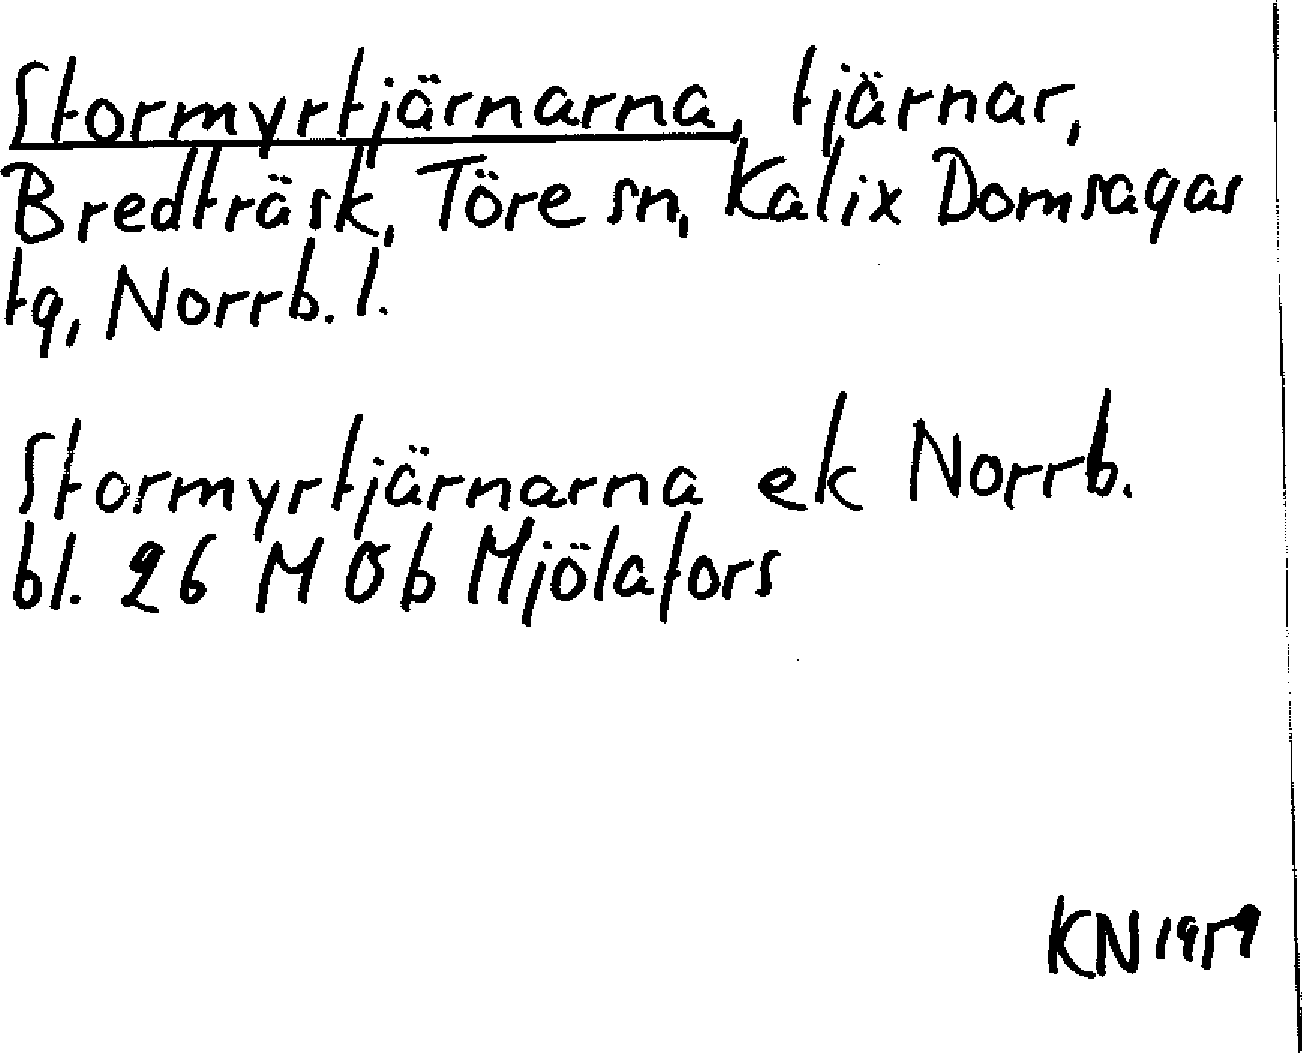 Stormyrtjärnarna, tjärnar,
Bredträsk, Töre sn, Kalix Domsagas
tg, Norrb. l.
Stormyrtjärnarna ek Norrb.
bl. 26 M Ob Mjölafors
KN 1959